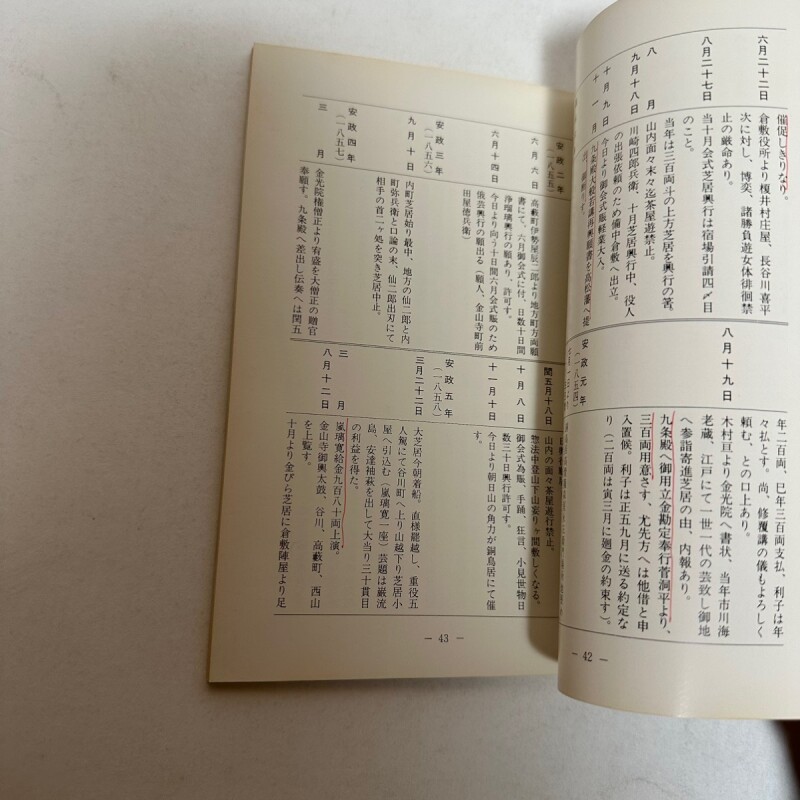 催促しきりなり。
六月二十二日
倉敷役所より榎井村庄屋、長谷川喜平
次に対し、博奕、諸勝負遊女体徘徊禁
止の厳命あり。
八月二十七日
当十月会式芝居興行は宿場引請四〆目
のこと。
八月
当年は三百両斗の上方芝居を興行の筈。
山内面々末々迄茶屋遊禁止。
九月十八日
川崎四郎兵衛、十月芝居興行中、役人
の出張依頼のため備中倉敷へ出立。
十月九日
今日より御会式賑軽業大入。
十一月
九条殿 講再興願書を高松藩へ提
年二百両、巳年三百両支払、利子は年
々払とす。尚、修覆講の儀もよろしく
頼む、との口上あり。
八月十九日
木村亘より金光院へ書状、当年市川海
老蔵、江戸にて一世一代の芸致し御地
へ参詣寄進芝居の由、内報あり。
九条殿へ御用立金勘定奉行菅洞平より、
三百両用意さす、尤先方へは他借と申
入置候。利子は正五九月に送る約定な
り（二百両は寅三月に廻金の約束す）。
安政元年
（一八五四）
― 42 ―
安政二年
（一八五五）
六月六日
高藪町伊勢屋辰二郎より地方町方両顧
書にて、六月御会式に付、日数十日間
浄瑠璃興行の願あり、許可す。
六月十四日
今日より向う十日間六月会式賑のため
俄芸興行の願出る（願人、金山寺町前
田屋徳兵衛）
安政三年
（一八五六）
九月十日
内町芝居始り最中、地方の仙二郎と内
町弥兵衛と口論の末、仙二郎出刃にて
相手の首二ヶ処を突き芝居中止。
安政四年
（一八五七）
三月
金光院権僧正より有盛を大僧正の贈官
奉願す。九条殿へ差出し伝奏へは閏五
閏五月十八日
山内の面々茶屋遊行禁止。
惣法中登山下山妄りヶ間敷しくなる、
十月八日
御会式為賑、手踊、狂言、小見世物日
数三十日興行許可す。
十一月十日
今日より朝日山の角力が銅鳥居にて催
す。
安政五年
（一八五八）
三月二十二日
大芝居今朝着船、直様罷越し、重役五
人駕にて谷川町へ上り山越下り芝居小
屋へ引込む（嵐璃寛一座）芸題は巌流
島、安達袖萩を出して大当り三十貫目
の利益を得た。
三月
嵐璃寛給金九百八十両上演。
八月十二日
金山寺御輿太鼓、谷川、高藪町、西山
を上覧す。
十月より金ぴら芝居に倉敷陣屋より足
― 43 ―